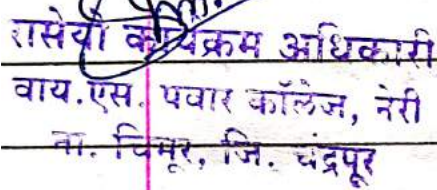 रासेयो कार्यक्रम अधिकारी
वाय.एस. पवार कॉलेज, नेरी
ता. चिमूर, जि. चंद्रपूर